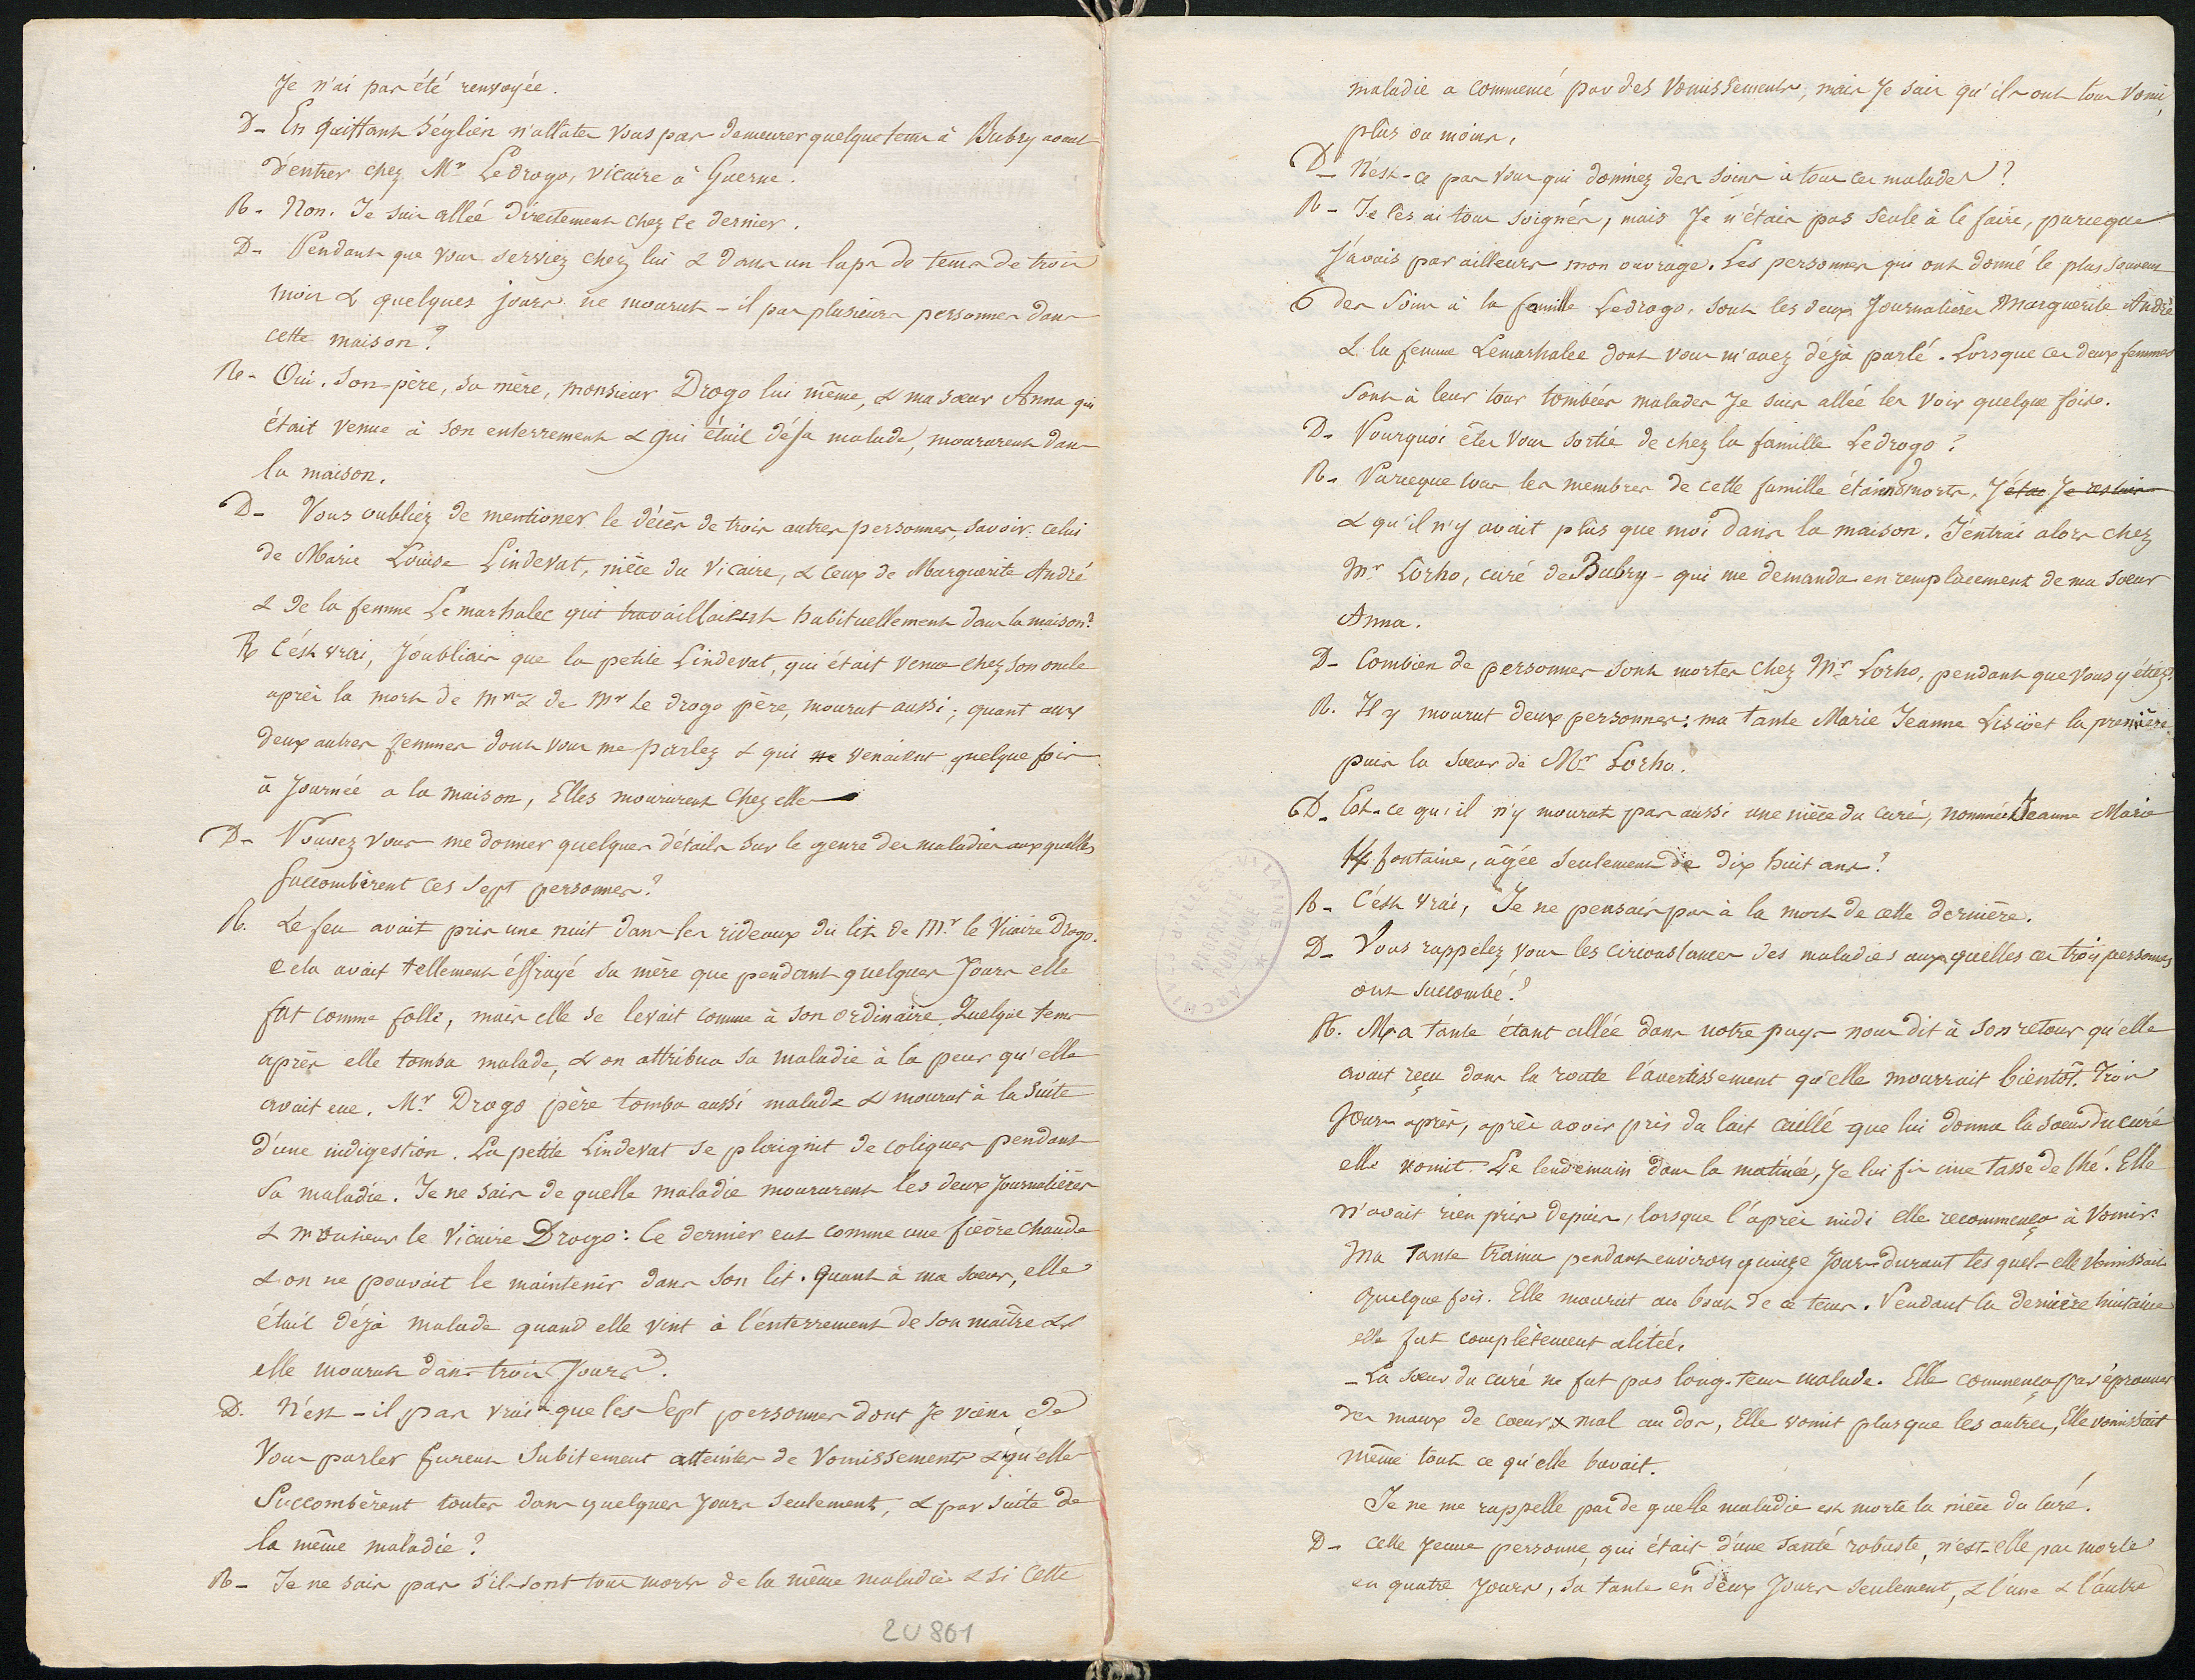 Je n'ai pas été renvoyée.
D- En quittant Séglien n'allates vous pas demeurer quelque tems à Bubry avant
d'entrer chez Mr Ledrogo, vicaire à Guerne.
R- Non. Je suis allée directement chez ce dernier.
D- Pendant que vous serviez chez lui & dans un laps de tems de trois
mois & quelques jours ne mourut-il pas plusieurs personnes dans
cette maison?
R- Oui. Son père, sa mère, monsieur Drogo lui même, & ma sœur Anna qui
était venue à son enterrement & qui était déja malade, moururent dans
la maison.
D- Vous oubliez de mentioner le décès de trois autres personnes, savoir: celui
de Marie Louise Lindevat, nièce du Vicaire, & ceux de Marguerite André
& de la femme Lemarhalec qui travaillaient habituellement dans la maison?
R C'est vrai, J'oubliais que la petite Lindevat, qui était venue chez son oncle
après la mort de Mme & de Mr Le drogo père, mourut aussi; quant aux
deux autres femmes dont vous me parlez & qui ne venaient quelque fois
à Journée a la maison, Elles moururent chez elle
D- Pouvez vous me donner quelques détails sur le genre des maladies auxquelles
succombèrent ces sept personnes?
R. Le feu avait pris une nuit dans les rideaux du lit de Mr le Vicaire Drogo.
Cela avait tellement éffrayé sa mère que pendant quelques Jours elle
fut comme folle, mais elle se levait comme à son ordinaire. Quelque tems
après elle tomba malade, & on attribua sa maladie à la peur qu'elle
avait eue. Mr Drogo père tomba aussi malade & mourut à la suite
d'une indigestion. La petite Lindevat se plaignit de coliques pendant
sa maladie. Je ne sais de quelle maladie moururent les deux Journalières
& monsieur le Vicaire Drogo: Ce dernier eut comme une fièvre chaude
& on ne pouvait le maintenir dans son lit. Quant à ma sœur, elle
était déjà malade quand elle vint à l'enterrement de son maître &
elle mourut dans trois Jours.
D. N'est-il pas vrai que les Sept personnes dont Je viens de
Vous parler furent Subitement atteintes de Vomissements & qu'elles
Succombèrent toutes dans quelques Jours seulement, & par suite de
la même maladie?
R- Je ne sais pas s'ils sont tous morts de la même maladie & si cette
2U 861
maladie a commencé par des Vomissements, mais Je sais qu'ils ont tous vomi,
plus ou moins.
D- N'est-ce pas vous qui donniez des soins à tous ces malades?
R- Je les ai tous soignés, mais Je n'étais pas seule à le faire, parceque
J'avais par ailleurs mon ouvrage. Les personnes qui ont donné le plus souvent
des soins à la famille Ledrogo, sont les deux Journalières Marguerite André
& la femme Lemarhalec dont vous m'avez déjà parlé. Lorsque ces deux femmes
sont à leur tour tombées malades Je suis allée les voir quelque fois.
D- Pourquoi êtes Vous sortie de chez la famille Ledrogo?
R- Parceque tous les membres de cette famille étaient morts. J'étais Je restais
& qu'il n'y avait plus que moi dans la maison. J'entrai alors chez
Mr Lorho, curé de Bubry - qui me demanda en remplacement de ma sœur
Anna.
D- Combien de personnes sont mortes chez Mr Lorho, pendant que vous y étiez?
R. Il y mourut deux personnes: ma tante Marie Jeanne Liscoët la première
puis la sœur de Mr Lorho.
D- Est-ce qu'il n'y mourut pas aussi une nièce du curé, nommée Jeanne Marie
fontaine, âgée seulement de dix huit ans?
R- C'est vrai, Je ne pensais pas à la mort de cette dernière.
D- Vous rappelez vous les circonstances des maladies auxquelles ces trois personnes
ont succombé?
R. Ma tante étant allée dans notre pays nous dit à son retour qu'elle
avait reçu dans la route l'avertissement qu'elle mourrait bientôt. Trois
Jours après, après avoir pris du lait caillé que lui donna la sœur du curé
elle vomit. Le lendemain dans la matinée, Je lui fis une tasse de thé. Elle
n'avait rien pris depuis, lorsque l'après midi elle recommença à vomir.
Ma Tante traina pendant environ quinze Jours durant les quels elle vomissait
quelque fois. Elle mourut au bout de ce tems. Pendant la dernière huitaine
elle fut complètement alitée.
- La sœur du curé ne fut pas long-tems malade. Elle commença par éprouver
des maux de cœur & mal au dos, Elle vomit plus que les autres, Elle vomissait
même tout ce qu'elle buvait.
Je ne me rappelle pas de quelle maladie est morte la nièce du Curé.
D- Cette Jeune personne, qui était d'une santé robuste, n'est-elle pas morte
en quatre Jours, sa tante en deux Jours seulement, & l'une & l'autre